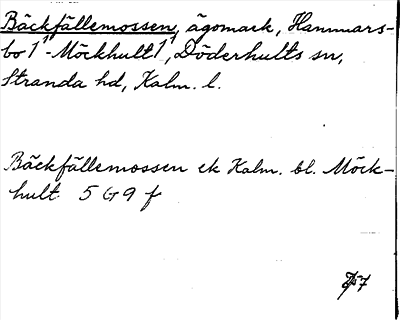 Bäckfällemossen, ägomark, Hammars-
bo 1¹-Möckhult 1¹, Döderhults sn,
Stranda hd, Kalm. l.
Bäckfällemossen ek Kalm. bl. Möck-
hult 5 G 9 f